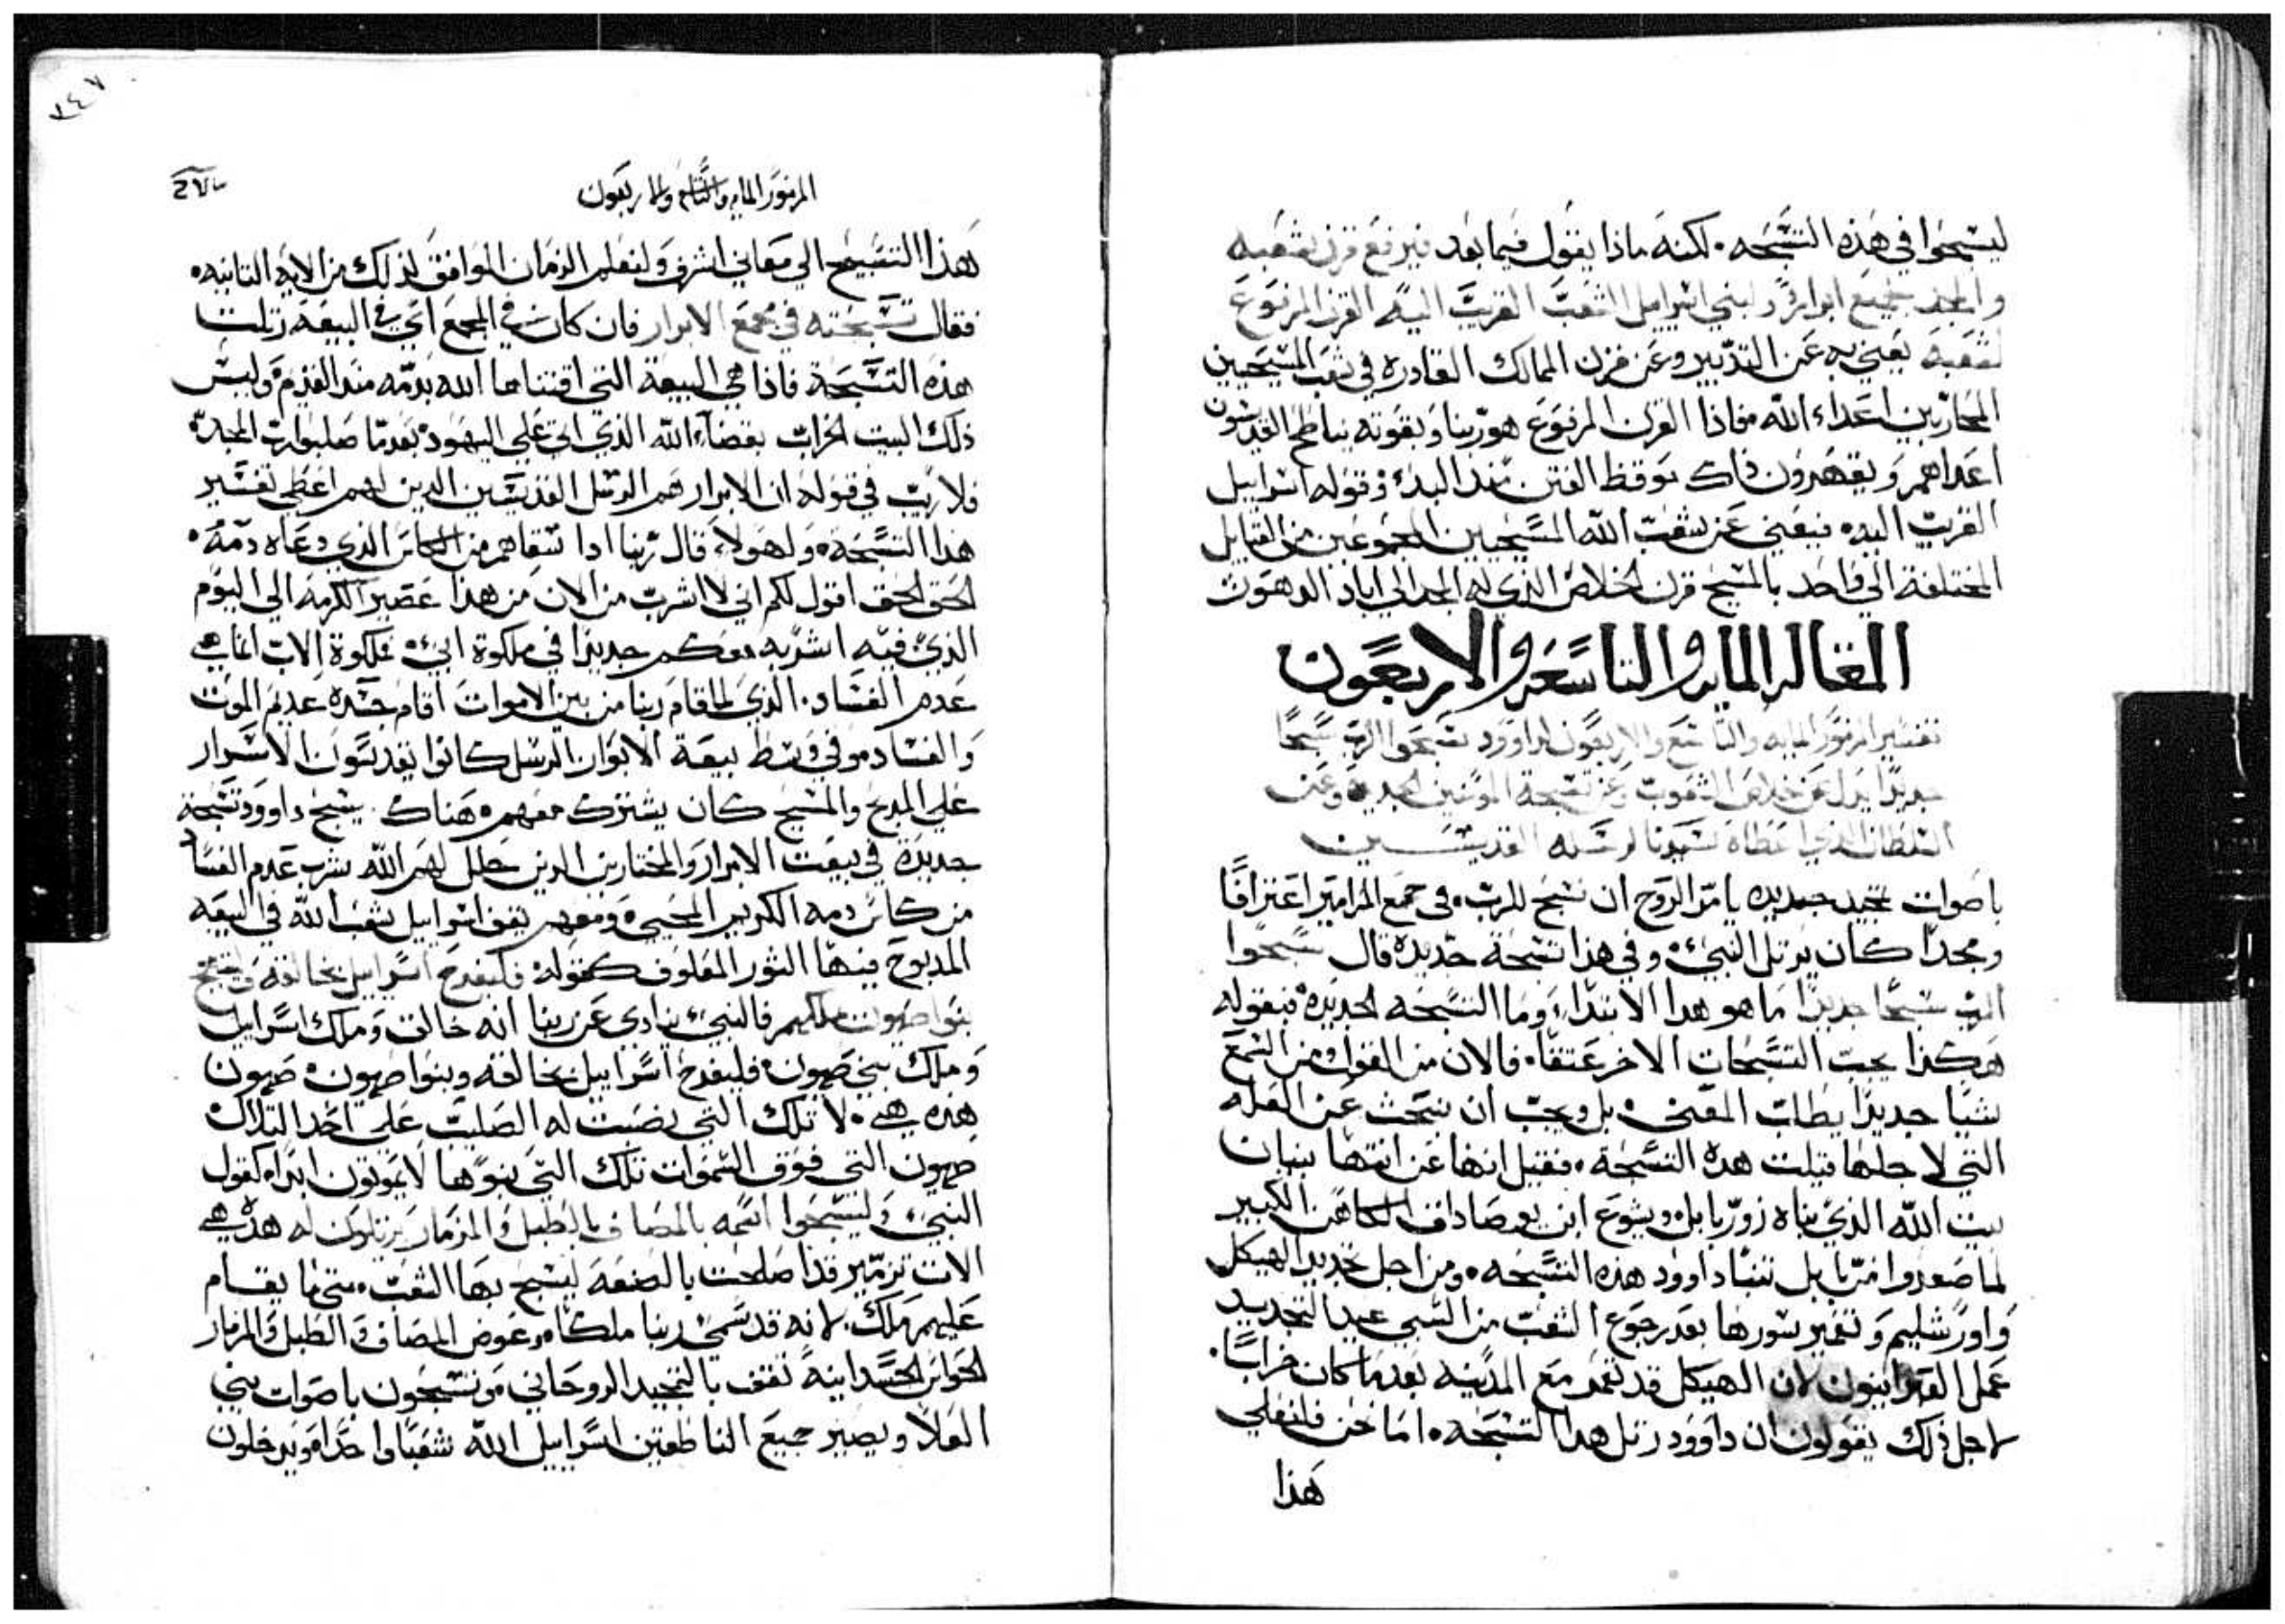 ليسبحوا في هذه التسبحه. لكنه ماذا يقول فيما بعد فيرفع قرن لشعبه
والمجد لجميع ابراره ولبني اسراييل الشعب القريب اليه القرن المرفوع
لشعبه يعني به عن التدبير وعن قرن الممالك القادره في شعب المسيحيين
المحاربين اعداء الله فاذا القرن المرفوع هو ربنا وبقوته يناطح القديسون
اعداهم ويقهرون ذاك موقظ الفتن منذ البدء وقوله اسراييل
القريب اليه فيعني عن شعب الله المسيحيين المجموعين من القبايل
المختلفة الي واحد بالمسيح قرن الخلاص الذي له المجد الي اباد الدهور
المقاله المايه والتاسعه والاربعون
تفسير المزمور المايه والتاسع والاربعون لداوود سبحوا الرب سبحًا
جديدًا يدل عن خلاص الشعوب وعن تسبحة المومنين الجديده وعن
السلطان الذي اعطاه سيدنا لرسله القديسين
باصوات تمجيد جديده يامر الروح ان نسبح للرب في جمع المزامير اعترافًا
ومجدًا كان يرتل النبي وفي هذا تسبحة جديده قال سبحوا
الرب سبحًا جديدًا ما هو هدا الابتداء وما التسبحه الجديده فبقوله
هكذا يجب التسبحات الاخر عتقا. فالان من القول ومن السمع
شيا جديدًا يطلب المعني بل ويجب ان نبحث عن العله
التي لاجلها قيلت هده التسبحة. فقيل انها عن انتها بنيان
بيت الله الذي بناه زور بابل ويشوع ابن يوصاداق الكاهن الكبير
لما صعدوا من بابل تنبا داوود هذه التسبحه ومن اجل تجديد الهيكل
واورشليم وتعمير سورها بعد رجوع الشعب من السبي عيد التجديد
عمل العبرانيون لان الهيكل قد تعمر مع المدينه بعدما كان خرابًا.
لاجل ذلك يقولون ان داوود رتل هدا التسبحه. اما نحن فلنعلي
هذا
المزمور المايه والتاسع والاربعون
هذا التسبيح الي معاني اشرف ولنعلم الزمان الموافق لذلك من الايه الثانيه.
فقال تسبحته في مجمع الابرار فان كان في المجمع اي في البيعه رتلت
هذه التسبحة فاذا هي البيعة التي اقتناها الله بدمه منذ القدم وليس
ذلك البيت الخراب بقضاء الله الذي اتي علي اليهود بعدما صلبوا رب المجد
فلا ريب في قوله ان الابرار هم الرسل القديسين الدين لهم اعطي تفسير
هذا التسبحة ولهولاء قال ربنا اذا سقاهم من الكاس الذي دعاه دمه.
الحق الحق اقول لكم اني لا اشرب من الان من هذا عصير الكرمه الي اليوم
الذي فيه اشربه معكم جديدًا في ملكوة ابي. ملكوة الاب انما هي
عدم الفساد. الذي لما قام ربنا من بين الاموات اقام جسده عديم الموت
والفساد وفي وسط بيعة الابرار الرسل كانوا يقدسون الاسرار
علي المدبح والمسيح كان يشترك معهم. هناك يسبح داوود تسبحة
جديدة في بيعت الابرار والمختارين الدين حلل لهم الله شرب عدم الفساد
من كاس دمه الكريم المحيي ومعهم يقف اسراييل شعب الله في البيعه
المدبوح فيها الثور المعلوف كقوله فليفرح اسراييل بخالقه ويبتهج
بنوا صهيون بملكهم فالنبي ينادي عن ربنا انه خالق وملك اسراييل
وملك بني صهيون. فليفرح اسراييل بخالقه وبنوا صهيون. صهيون
هذه هي. لا تلك التي نصبت له الصليب علي احد التلال
صهيون التي فوق السموات تلك التي بنوها لا يموتون ابدًا كقول
النبي وليسبحوا اسمه بالمصاف بالطبل والمزمار يرتلون له هده هي
الات تزمير قد اصلحت بالصنعه ليسبح بها الشعب. متي ما يقام
عليهم ملك. لانه قد سمي ربنا ملكًا. وعوض المصاف والطبل والمزمار
الحواس الجسدانية تقف بالتمجيد الروحاني ونسبحون باصوات بني
العلا ويصير جميع الناطقين اسراييل الله شعبًا واحدًا ويدخلون